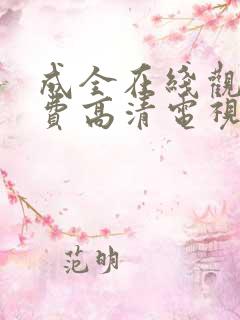 成全在綫觀
費高清電視
范明